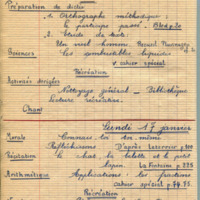 Préparation de dictée
1. Orthographe méthodique:
le participe passé. Bled p. 20
2. Etude de texte:
Un vieil homme
Sciences Les combustibles liquides
cahier spécial
Récréation
Activités dirigées Nettoyage général - Bibliothèque
Lecture récréation.
Chant
Lundi 17 janvier
Morale Connais-toi toi-même
Réfléchissons D'après
Récitation le chat, la belette et le petit
lapin La Fontaine p. 225
Arithmétique Applications: les fractions
cahier spécial p. 74.75.
Récréation